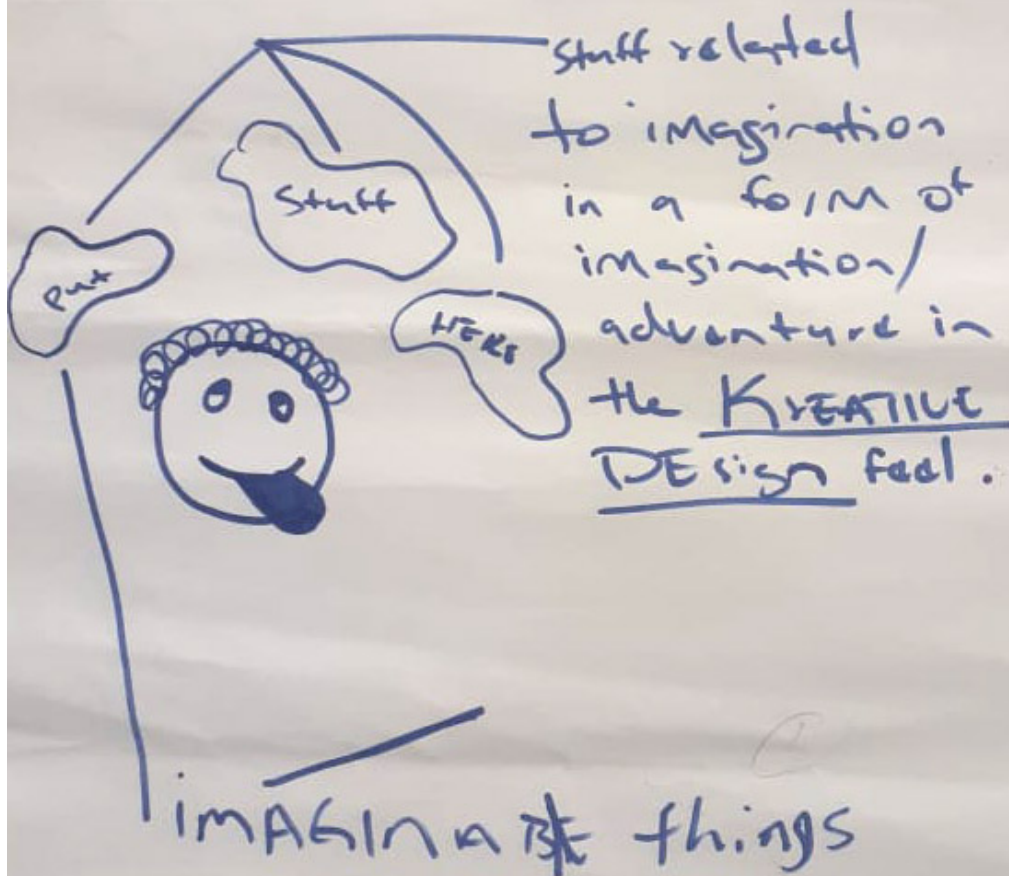 stuff related
to imagination
in a form of
imagination/
adventure in
the KrEATIVE
DEsign feel.
Stuff
Put
HERE
imAGINABLE things